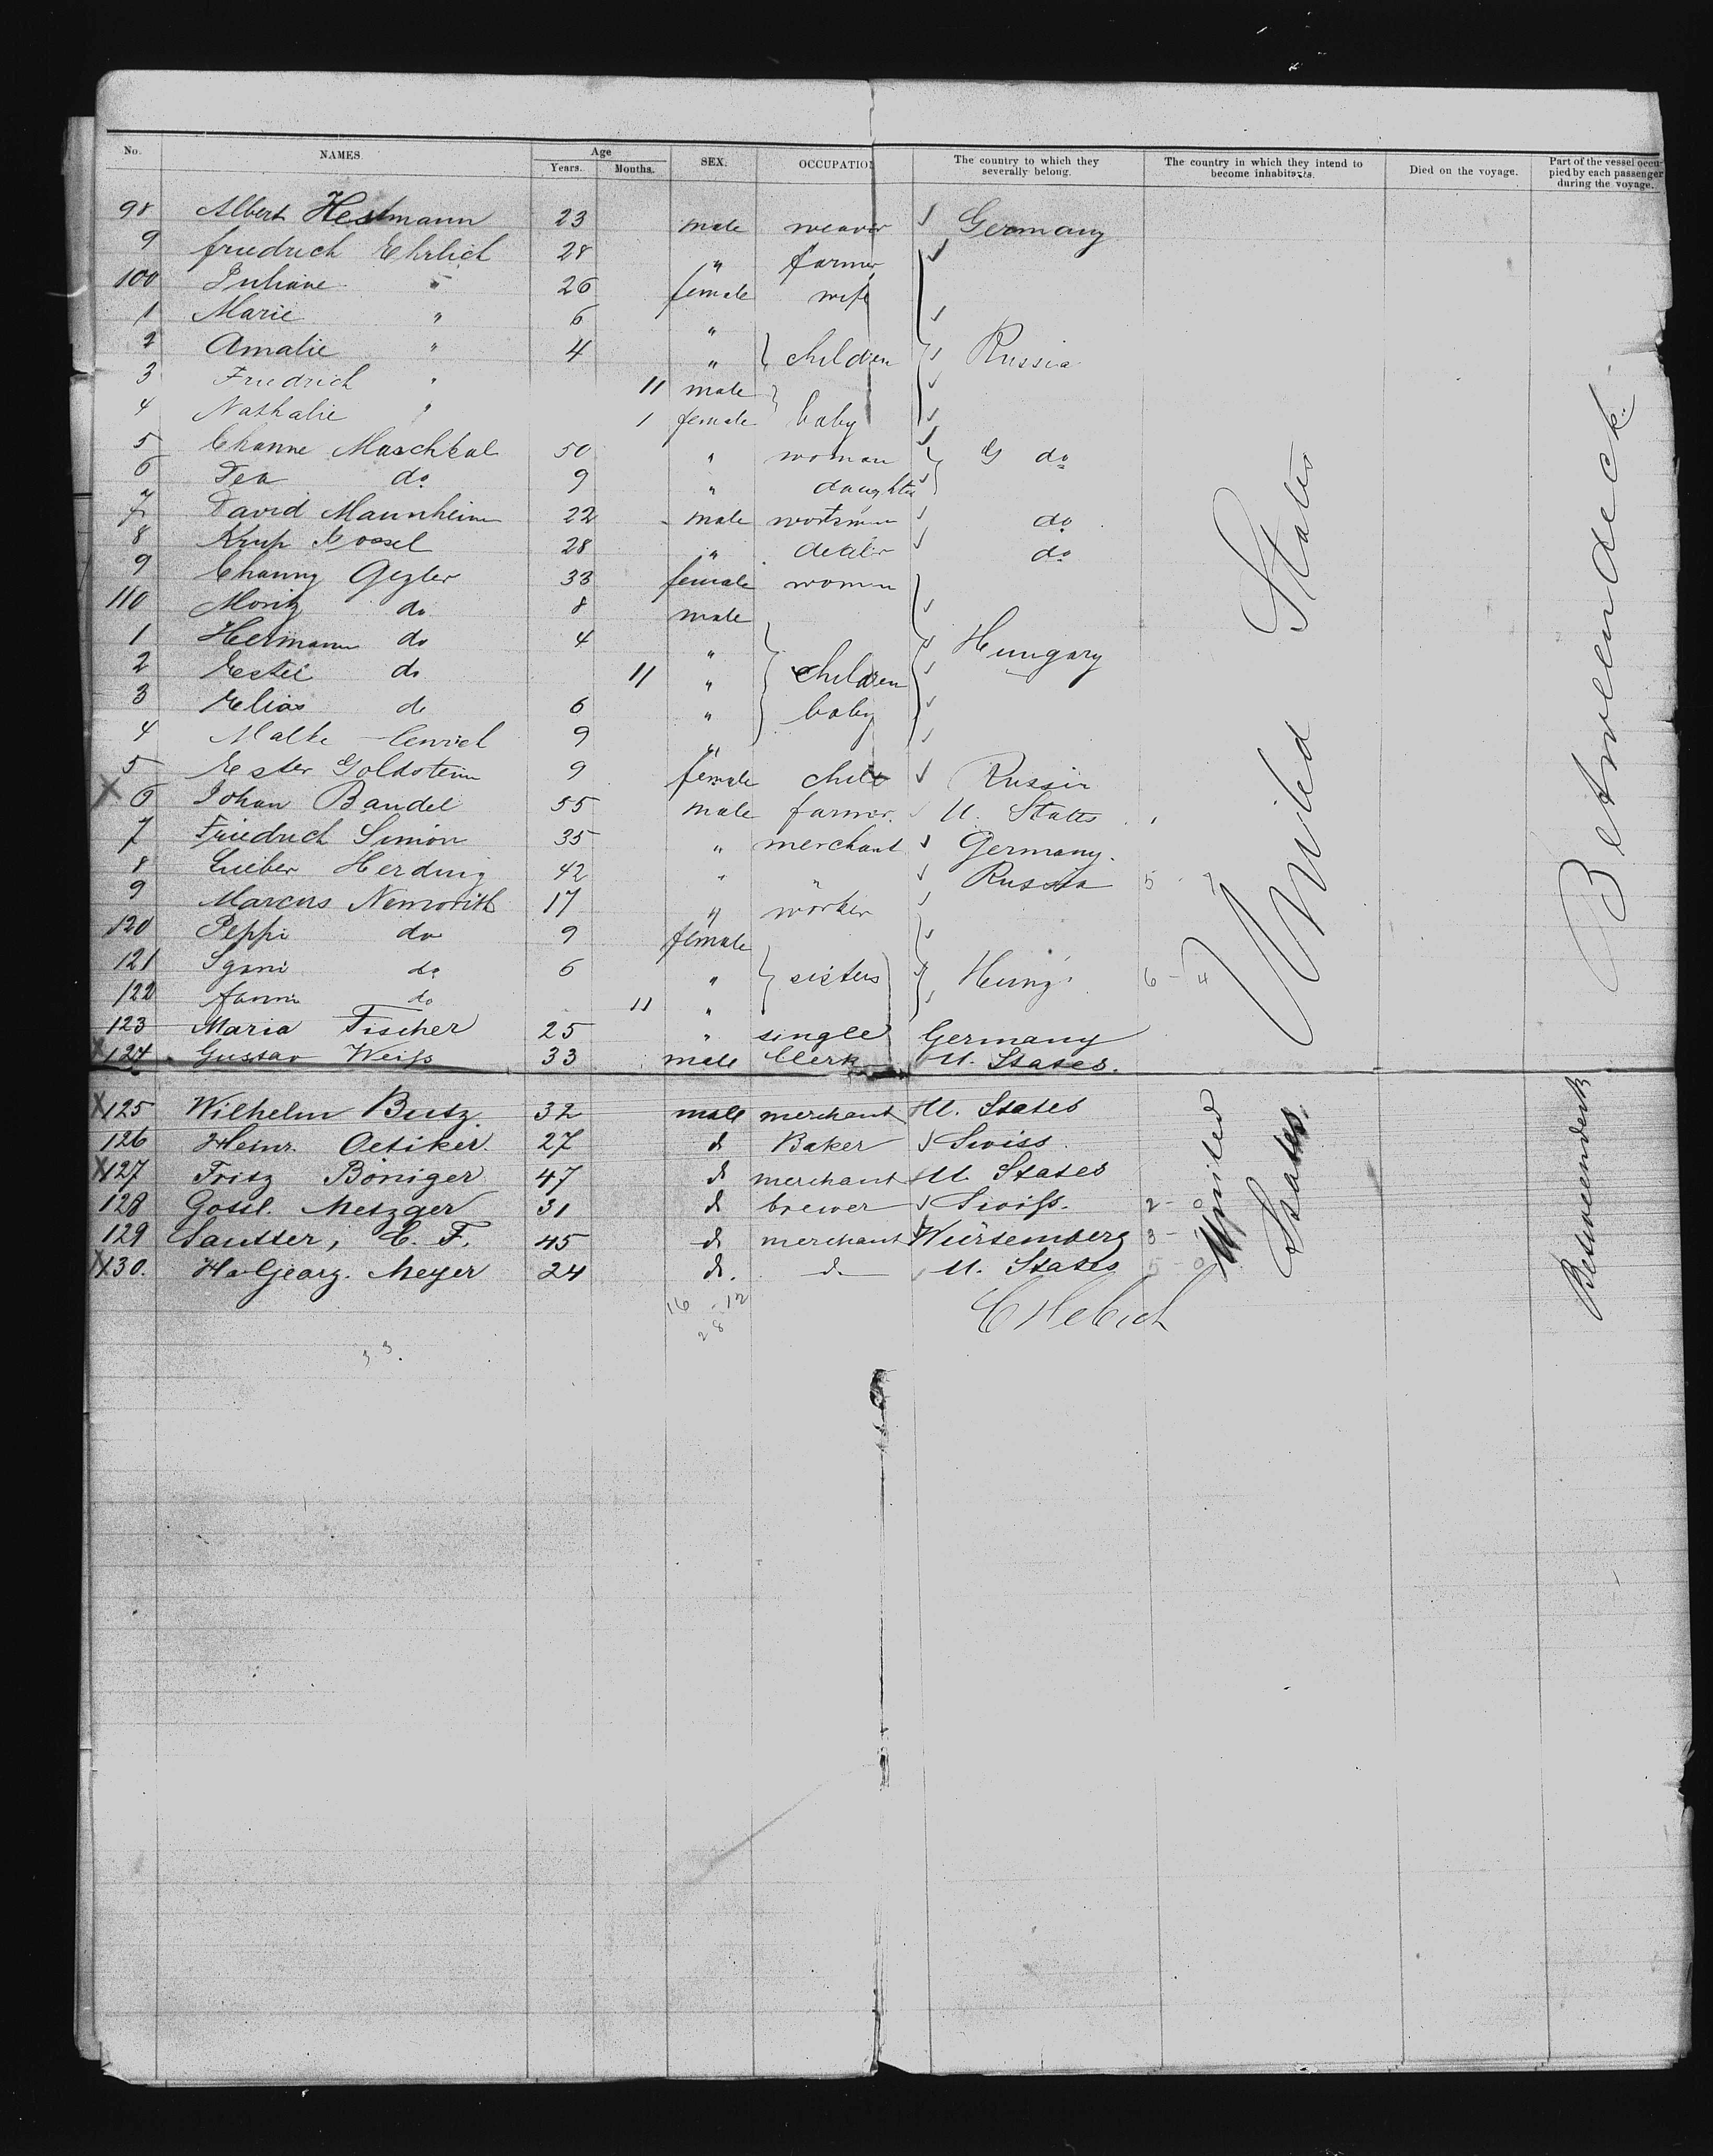 No. NAMES. Age Years. Months. SEX. OCCUPATION The country to which they severally belong. The country in which they intend to become inhabitants. Died on the voyage. Part of the vessel occupied by each passenger during the voyage.
98 Albert Hestmann 23 male weaver Germany
9 friedrich Ehrlich 28 " farmer
100 Juliane " 26 female wife
1 Marie " 6 "
2 Amalie " 4 " children Russia
3 Friedrich " 11 male
4 Nathalie " 1 female baby
5 Channe Maschkal 50 " woman do
6 Fea do 9 " daughter
7 David Mannheim 22 male do
8 Gossel 28 " dealer do
9 Channy Gezler 33 female women
110 Moritz do 8 male
1 Hermann do 4 " Hungary
2 Estei do 11 " children
3 Elias do 6 " baby
4 Malke 9 "
5 Ester Goldstein 9 female child Russia
X 6 Johan Bandel 55 male farmer. U. States
7 Friedrich Simon 35 " merchant Germany.
8 Lieber Herding 42 " " Russia 5 -
9 Marcus 17 " worker
120 Peppi do 9 female
121 do 6 " sisters Hung. 6 - 4
122 fanni do 11 "
123 Maria Fischer 25 " single Germany
X 124 Gustav Weiss 33 male Clerk U. States.
United States
Betweendeck.
X 125 Wilhelm Butz 32 male merchant U. States
126 Heinr. Oetiker. 27 d Baker Swiss.
X 127 Fritz Böniger 47 d merchant U. States
128 Gottl. Metzger 31 d brewer Swiss. 2 - 0
129 Sautter, C. F. 45 d merchant Würtemberg 3 -
X 130. Georg. Meyer 24 d. d U. States 5 - 0
United States
Betweendeck
16 - 12
28
33.